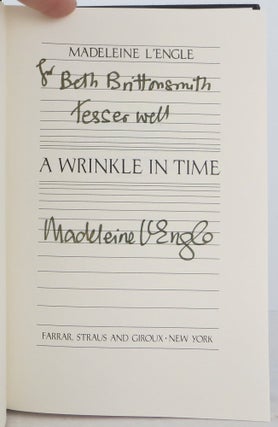 MADELEINE L'ENGLE
for Beth Brittonsmith
Tesser well
A WRINKLE IN TIME
Madeleine L'Engle
FARRAR, STRAUS AND GIROUX • NEW YORK